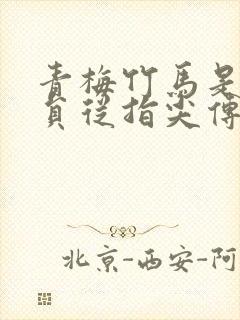 青梅竹马是
貢從指尖傳
北京-西安-阿